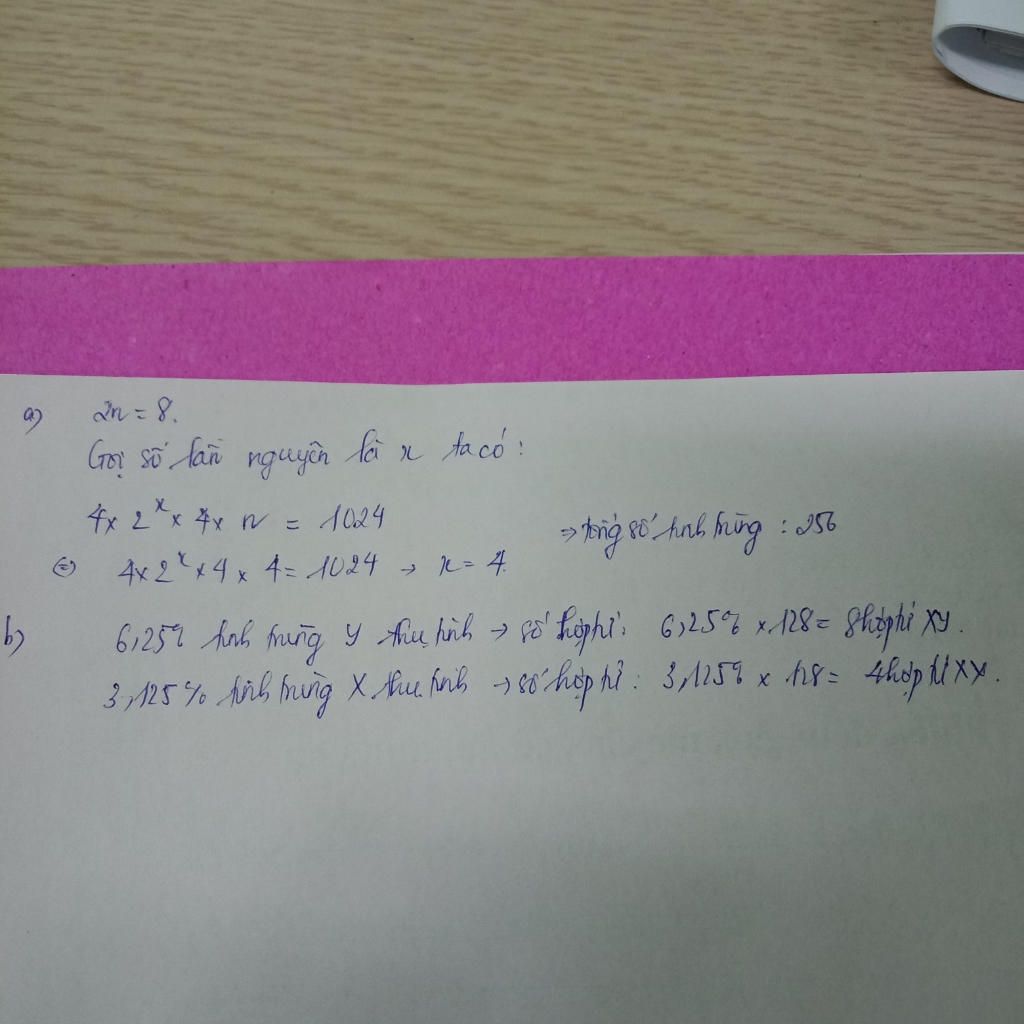 a) 2n = 8.
Gọi số lần nguyên là x ta có:
4 x 2^x x 4 x n = 1024 => tổng số tinh trùng : 256
<=> 4 x 2^x x 4 x 4 = 1024 → x = 4.
b) 6,25% tinh trùng Y thụ tinh → số hợp tử: 6,25% x 128 = 8 hợp tử XY.
3,125% tinh trùng X thụ tinh → số hợp tử: 3,125% x 128 = 4 hợp tử XX.